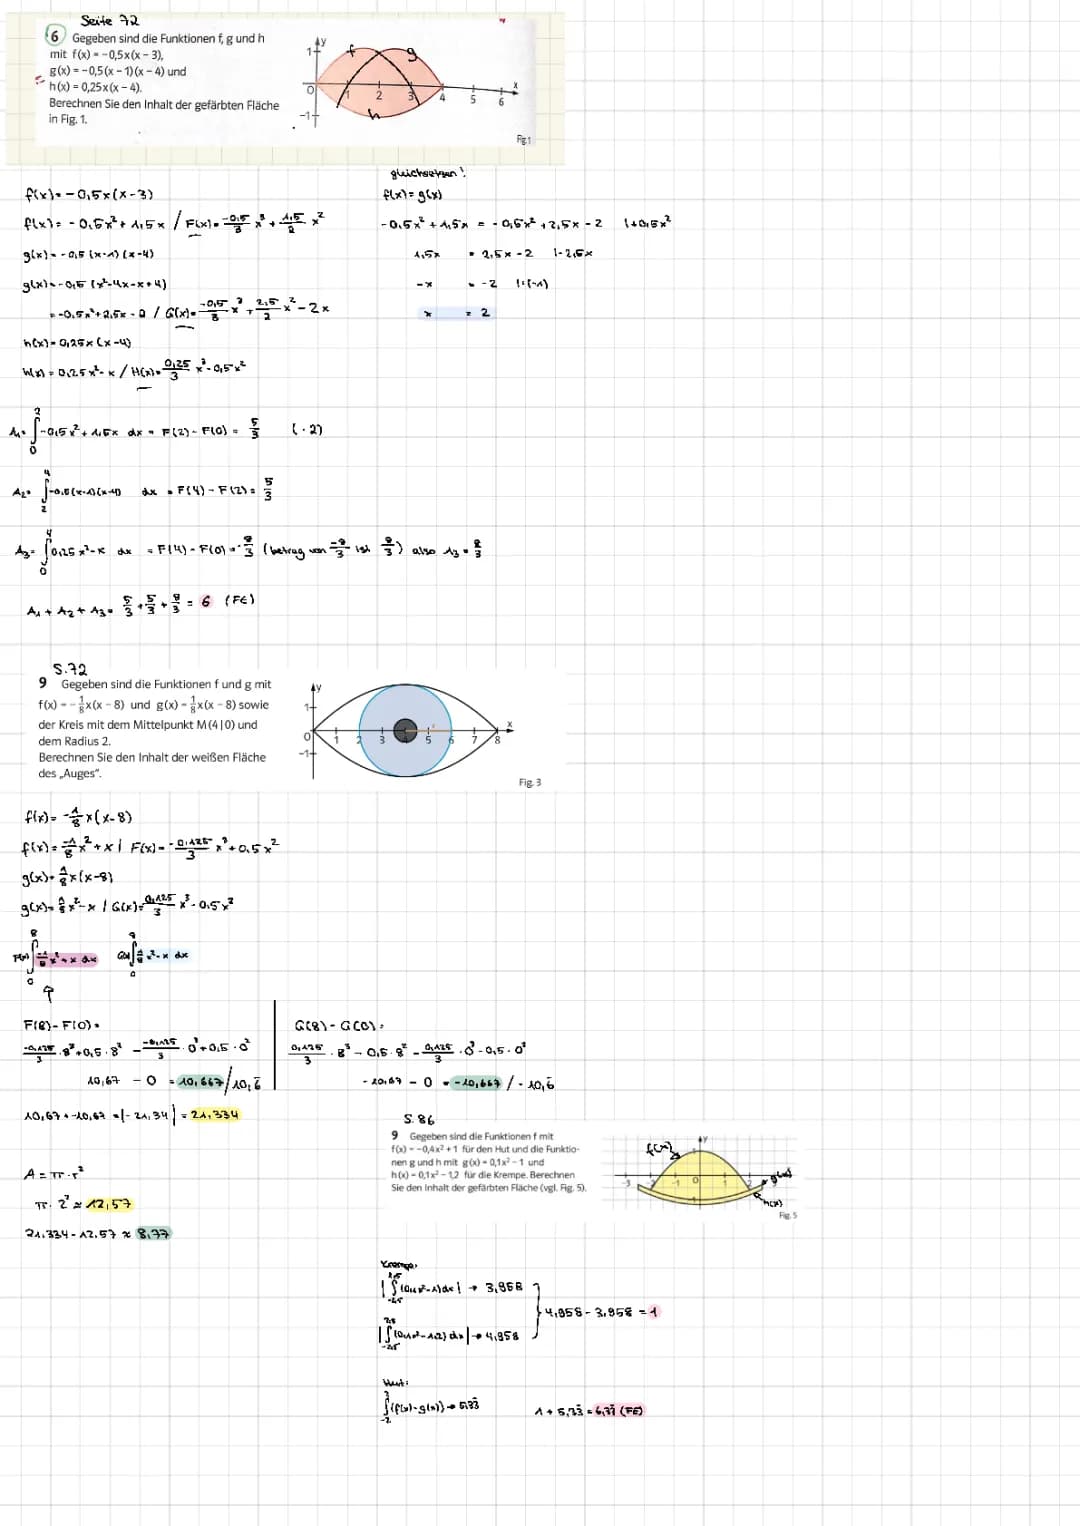 Seite 72
6 Gegeben sind die Funktionen f, g und h
mit f(x) = -0,5x(x - 3),
g(x) = -0,5(x - 1)(x - 4) und
h(x) = 0,25x(x - 4).
Berechnen Sie den Inhalt der gefärbten Fläche
in Fig. 1.
y
1
f
g
0
1 2 3 4 5 6
x
-1
h
Fig. 1
f(x) = -0,5x(x-3)
f(x) = -0,5x² + 1,5x / F(x) = -0,5/3 x³ + 1,5/2 x²
g(x) = -0,5 (x-1)(x-4)
g(x) = -0,5 (x²-4x-x+4)
= -0,5x²+2,5x-2 / G(x) = -0,5/3 x³ + 2,5/2 x² - 2x
h(x) = 0,25x (x-4)
h(x) = 0,25x² - x / H(x) = 0,25/3 x³ - 0,5x²
gleichsetzen!
f(x) = g(x)
-0,5x² + 1,5x = -0,5x² + 2,5x - 2 |+0,5x²
1,5x = 2,5x - 2 |-2,5x
-x = -2 |:(-1)
x = 2
A₁ = ∫₀² -0,5x² + 1,5x dx = F(2) - F(0) = 5/3 (·2)
A₂ = ∫₂⁴ -0,5(x-1)(x-4) dx = F(4) - F(2) = 5/3
A₃ = ∫₀⁴ 0,25x² - x dx = F(4) - F(0) = -8/3 (betrag von -8/3 ist 8/3) also A₃ = 8/3
A₁ + A₂ + A₃ = 5/3 + 5/3 + 8/3 = 6 (FE)
S.72
9 Gegeben sind die Funktionen f und g mit
f(x) = -1/8 x(x - 8) und g(x) = 1/8 x(x - 8) sowie
der Kreis mit dem Mittelpunkt M(4|0) und
dem Radius 2.
Berechnen Sie den Inhalt der weißen Fläche
des „Auges".
y
1
0
1 2 3 5 6 7 8
x
-1
Fig. 3
f(x) = -1/8 x(x-8)
f(x) = -1/8 x² + x | F(x) = -0,125/3 x³ + 0,5x²
g(x) = 1/8 x(x-8)
g(x) = 1/8 x² - x / G(x) = 0,125/3 x³ - 0,5x²
F(x) ∫₀⁸ -1/8 x² + x dx G(x) ∫₀⁸ 1/8 x² - x dx
F(8) - F(0) =
-0,125/3 · 8³ + 0,5 · 8² - -0,125/3 · 0³ + 0,5 · 0²
10,67 - 0 = 10,667 / 10,6̄
G(8) - G(0) =
0,125/3 · 8³ - 0,5 · 8² - 0,125/3 · 0³ - 0,5 · 0²
-10,67 - 0 = -10,667 / -10,6̄
10,67 + -10,67 = |-21,34| = 21,334
A = π · r²
π · 2² ≈ 12,57
21,334 - 12,57 ≈ 8,77
S. 86
9 Gegeben sind die Funktionen f mit
f(x) = -0,4x² + 1 für den Hut und die Funktio-
nen g und h mit g(x) = 0,1x² - 1 und
h(x) = 0,1x² - 1,2 für die Krempe. Berechnen
Sie den Inhalt der gefärbten Fläche (vgl. Fig. 5).
f(x)
y
-3 -1 0 1 2
g(x)
h(x)
Fig. 5
Krempe:
|∫ (0,1x²-1) dx| → 3,958
|∫ (0,1x²-1,2) dx| → 4,958
4,958 - 3,958 = 1
Hut:
∫ (f(x) - g(x)) → 5,33̄
1 + 5,33̄ = 6,33̄ (FE)